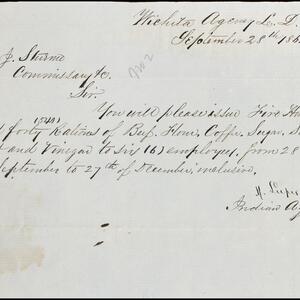 Wichita Agency L. T.
September 28th 186
J. Sturm
Commissary &c.
No 2
Sir.
You will please issue Five Hu
(540)
forty Rations of Beef, Flour, Coffe, Sugar, S
and Vinegar to Six (6) employees, from 28
September to 27th of December, inclusive.
Indian Ag